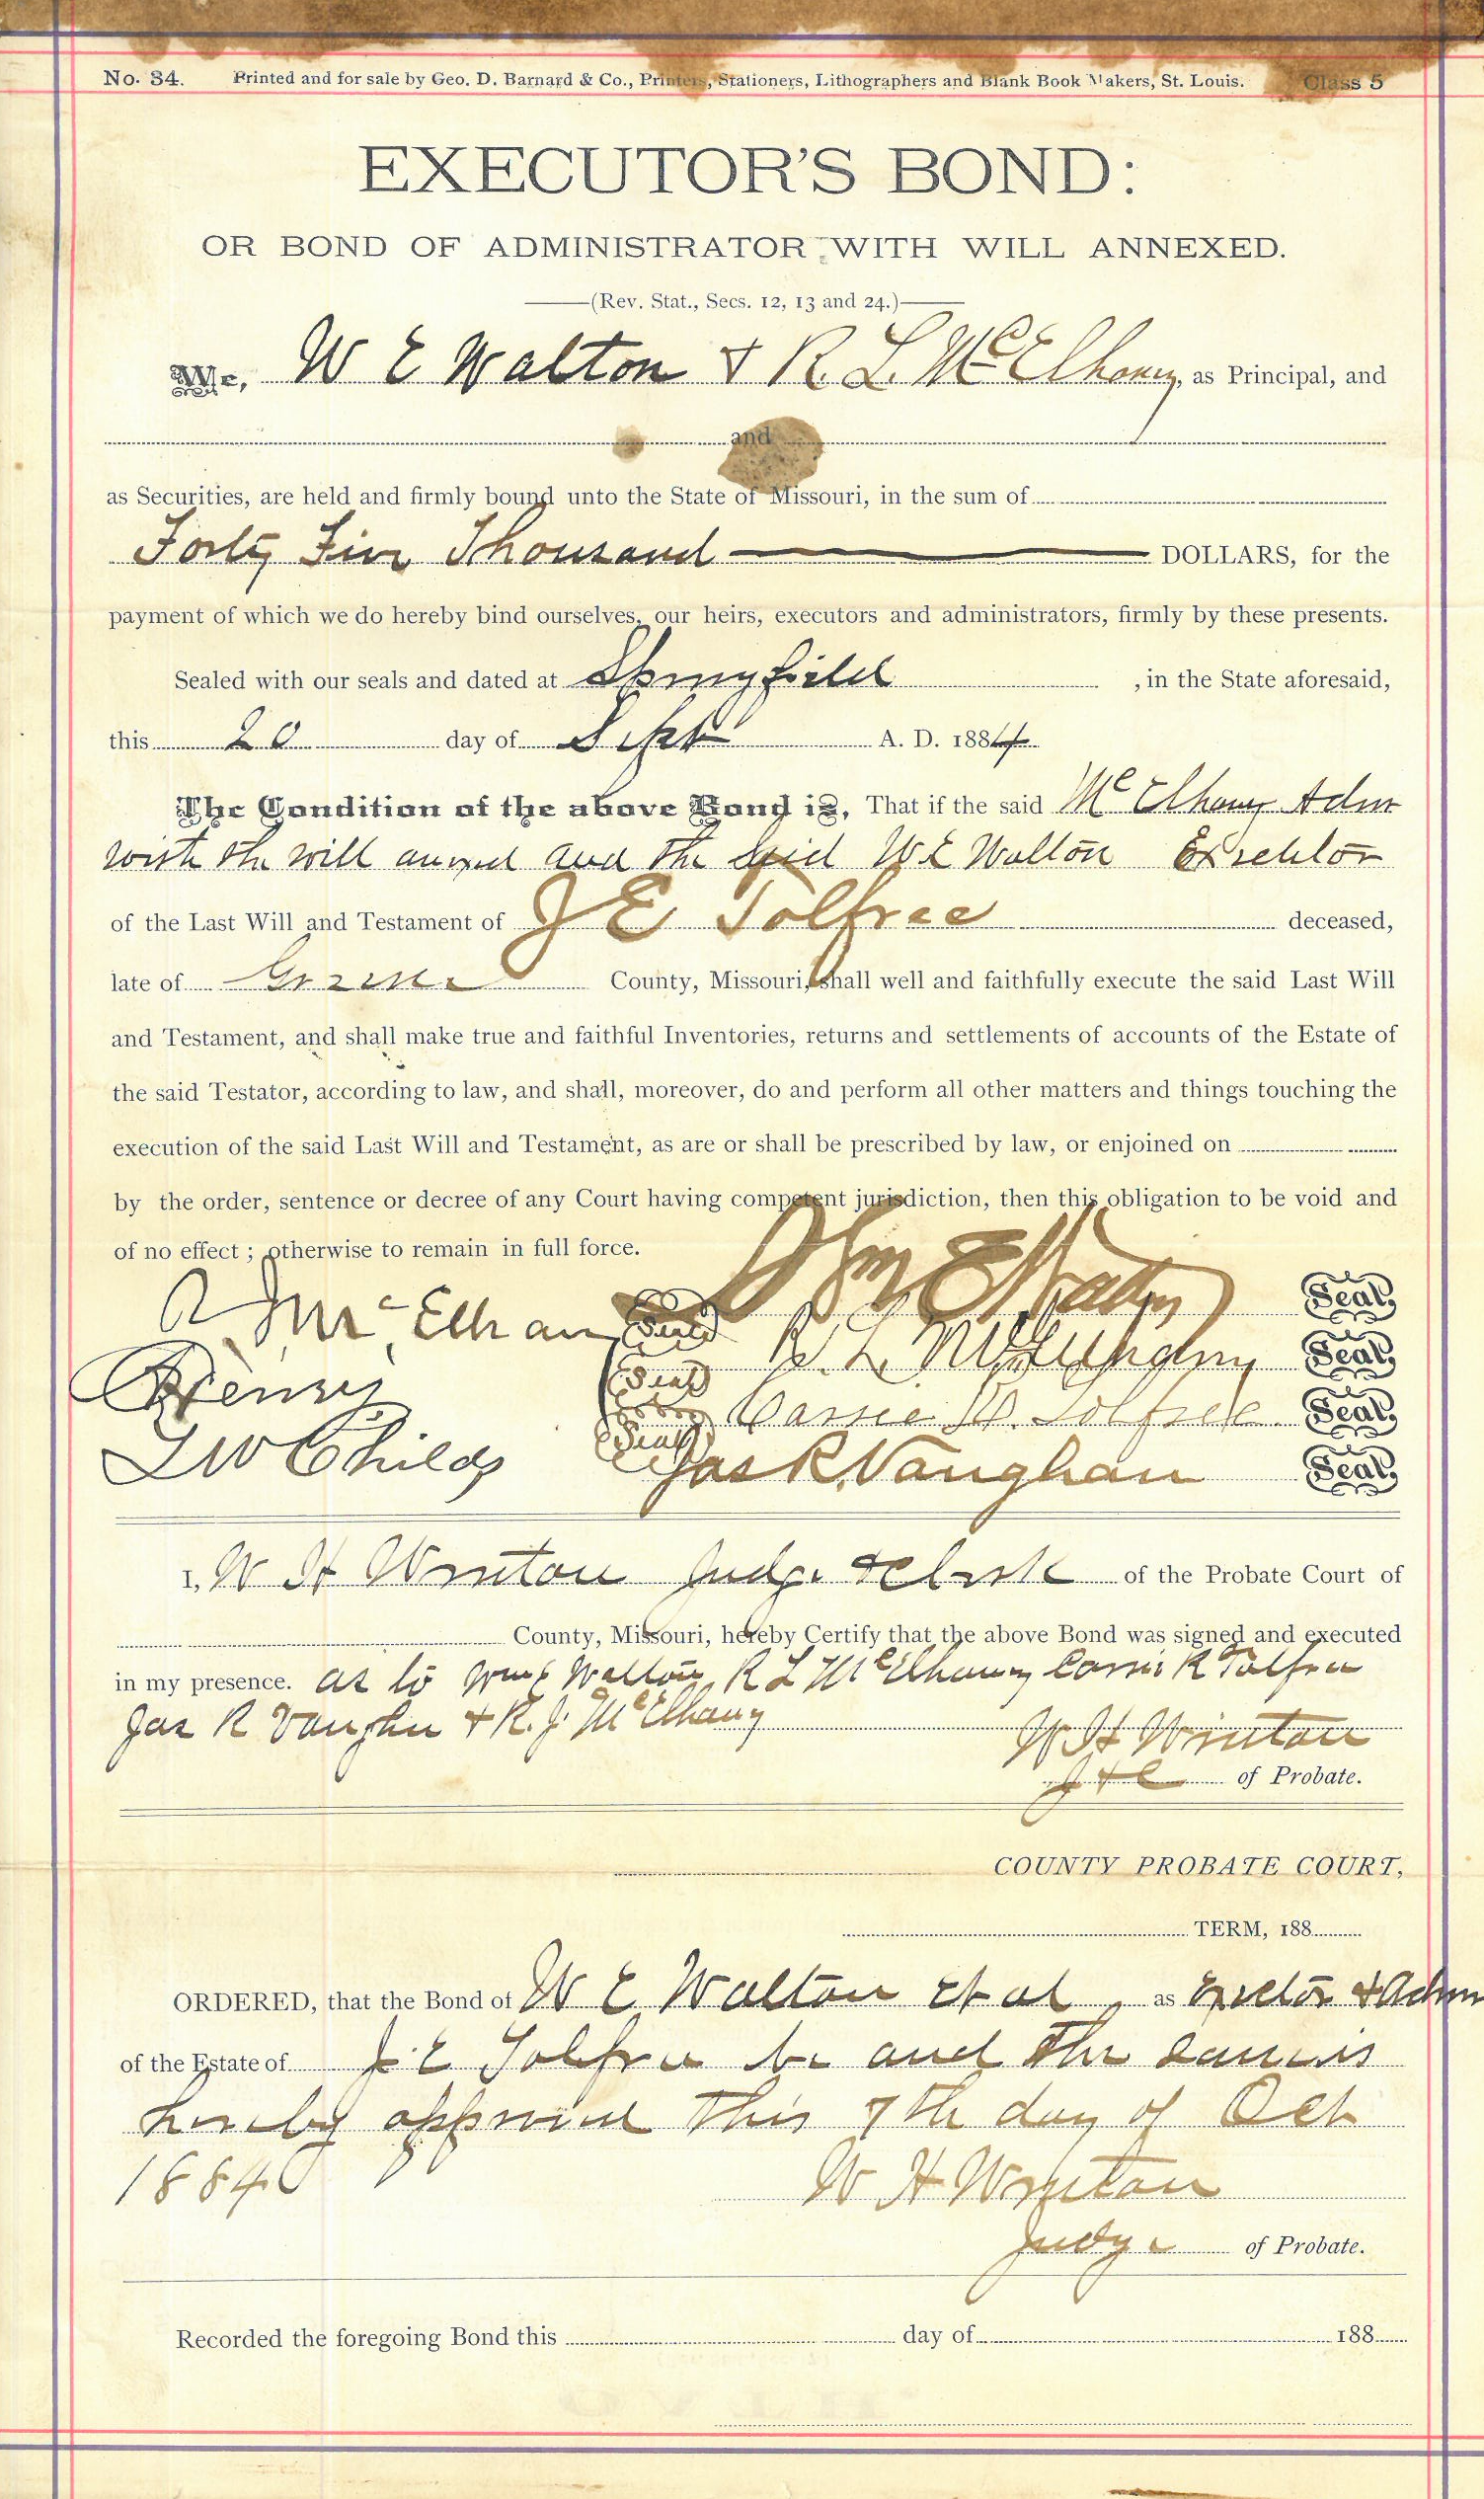 No. 34. Printed and for sale by Geo. D. Barnard & Co., Printers, Stationers, Lithographers and Blank Book Makers, St. Louis. Class 5
EXECUTOR'S BOND:
OR BOND OF ADMINISTRATOR WITH WILL ANNEXED.
(Rev. Stat., Secs. 12, 13 and 24.)
We, W E Walton & R. L. McElhany, as Principal, and
and
as Securities, are held and firmly bound unto the State of Missouri, in the sum of
Forty Five Thousand DOLLARS, for the
payment of which we do hereby bind ourselves, our heirs, executors and administrators, firmly by these presents.
Sealed with our seals and dated at Springfield, in the State aforesaid,
this 20 day of Sept A. D. 1884
The Condition of the above Bond is, That if the said McElhany Adm
with the will anxed and the said W E Walton Executor
of the Last Will and Testament of J E Tolfree deceased,
late of Greene County, Missouri, shall well and faithfully execute the said Last Will
and Testament, and shall make true and faithful Inventories, returns and settlements of accounts of the Estate of
the said Testator, according to law, and shall, moreover, do and perform all other matters and things touching the
execution of the said Last Will and Testament, as are or shall be prescribed by law, or enjoined on
by the order, sentence or decree of any Court having competent jurisdiction, then this obligation to be void and
of no effect; otherwise to remain in full force.
Wm E Walton Seal
R J McElhany Seal R. L. McElhany Seal
Henry Seal Carrie R. Tolfree Seal
L W Childs Seal Jas R. Vaughan Seal
I, W H Winton Judge & Clerk of the Probate Court of
County, Missouri, hereby Certify that the above Bond was signed and executed
in my presence. as to Wm E Walton R L McElhany Carrie R Tolfree
Jas R Vaughn & R. J. McElhany
W H Winton
J & C of Probate.
COUNTY PROBATE COURT,
TERM, 188
ORDERED, that the Bond of W E Walton et al as Exector & Adm
of the Estate of J. E Tolfree be and the same is
hereby approved this 7th day of Oct
1884
W H Winton
Judge of Probate.
Recorded the foregoing Bond this day of 188